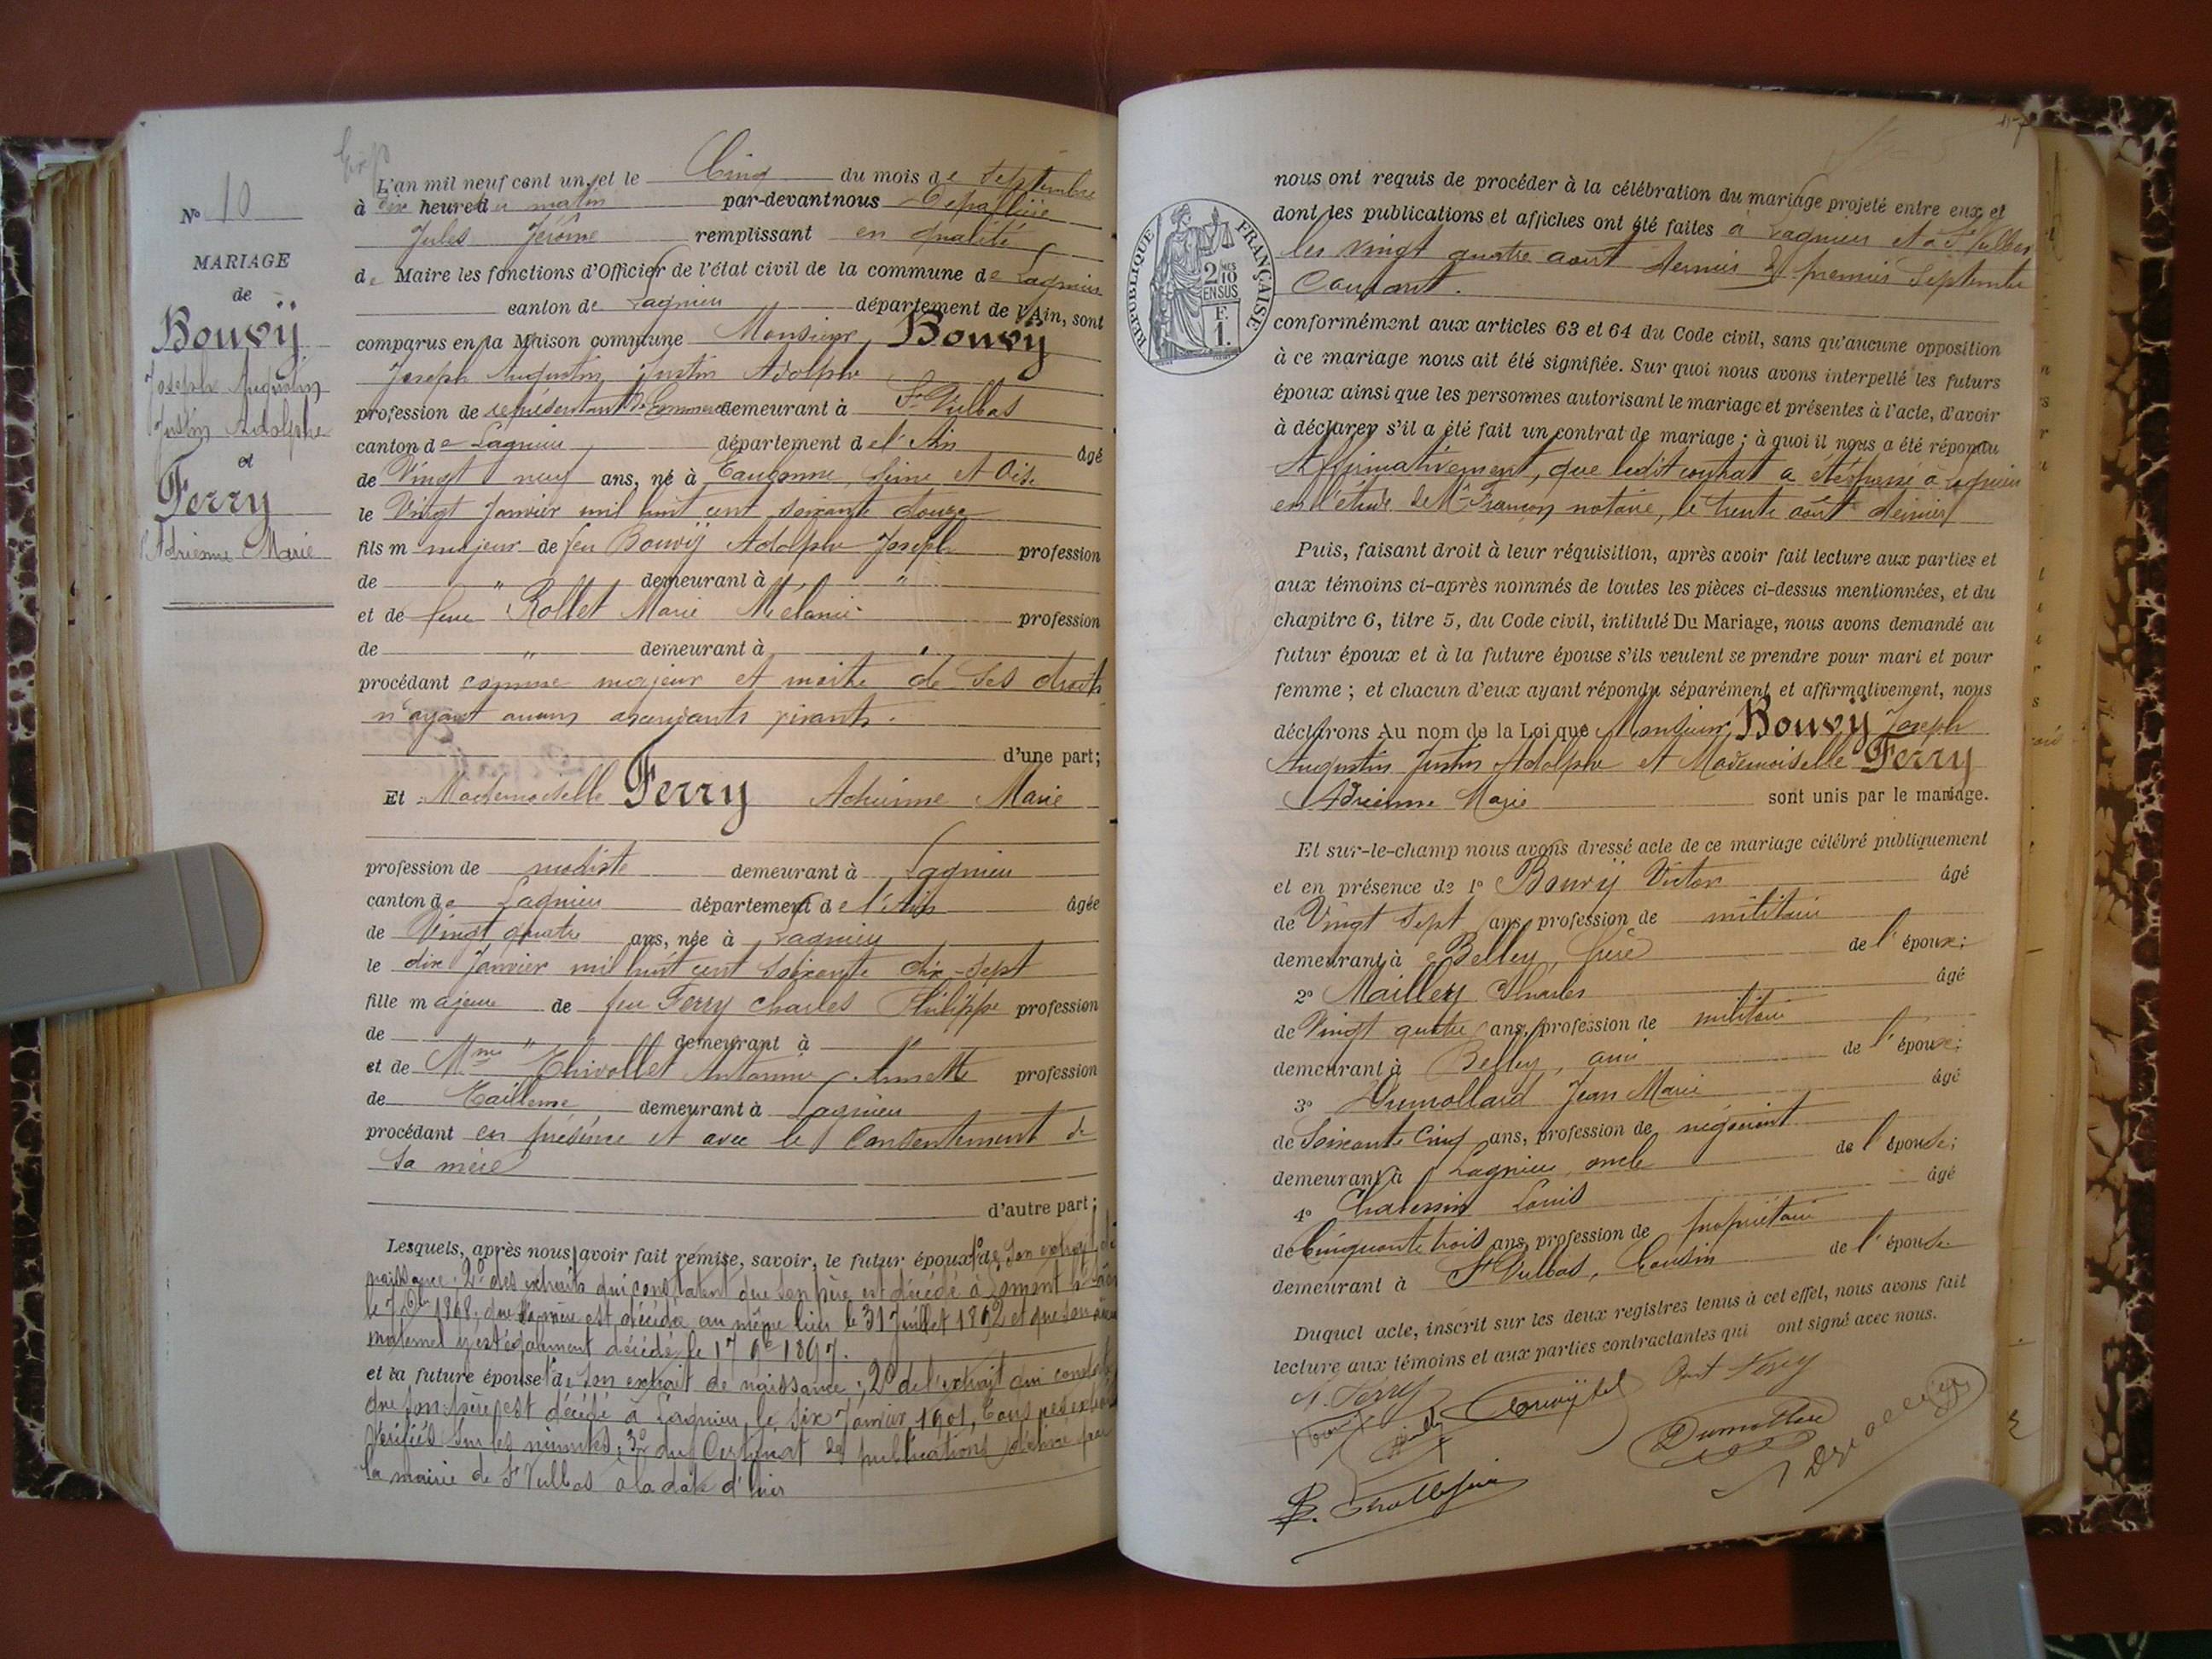 N° 10
MARIAGE
de
Bouvÿ
Joseph Augustin
Justin Adolphe
et
Ferry
Adrienne Marie
L'an mil neuf cent un, et le Cinq du mois de Septembre
à dix heures du matin par-devant nous
Jules Jérôme remplissant en qualité
de Maire les fonctions d'Officier de l'état civil de la commune de Lagnieu
canton de Lagnieu département de l'Ain, sont
comparus en la Maison commune Monsieur Bouvÿ
Joseph Augustin Justin Adolphe
profession de représentant de Commerce demeurant à St Vulbas
canton de Lagnieu département de l'Ain âgé
de Vingt neuf ans, né à Seine et Oise
le Vingt Janvier mil huit cent soixante douze
fils majeur de feu Bouvÿ Adolphe Joseph profession
de " demeurant à "
et de feue Rollet Marie Mélanie profession
de " demeurant à "
procédant comme majeur et maître de ses droits
n'ayant aucuns ascendants vivants.
d'une part;
Et Mademoiselle Ferry Adrienne Marie
profession de modiste demeurant à Lagnieu
canton de Lagnieu département de l'Ain âgée
de Vingt quatre ans, née à Lagnieu
le dix Janvier mil huit cent soixante dix-sept
fille majeure de feu Ferry Charles Philippe profession
de " demeurant à "
et de Mme Chivollet Antoinie Annette profession
de Tailleuse demeurant à Lagnieu
procédant en présence et avec le Consentement de
Sa mère
d'autre part;
Lesquels, après nous avoir fait remise, savoir, le futur époux 1° de son extrait de
naissance; 2° des extraits qui constatent que son père est décédé à
le 7 1868, que sa mère est décédée au même lieu le 31 Juillet 1892 et que son
maternel y est également décédé le 17 9bre 1897.
et la future épouse 1° de son extrait de naissance; 2° de l'extrait qui constate
que son père est décédé à Lagnieu le six Janvier 1901, tous ces extraits
vérifiés sur les minutes; 3° du Certificat de publications délivré par
la mairie de St Vulbas à la date d'hier
RÉPUBLIQUE FRANÇAISE
2/10 MES
EN SUS
F.
1.
nous ont requis de procéder à la célébration du mariage projeté entre eux, et
dont les publications et affiches ont été faites à Lagnieu et à St Vulbas
les vingt quatre août dernier et premier Septembre
Courant.
conformément aux articles 63 et 64 du Code civil, sans qu'aucune opposition
à ce mariage nous ait été signifiée. Sur quoi nous avons interpellé les futurs
époux ainsi que les personnes autorisant le mariage et présentes à l'acte, d'avoir
à déclarer s'il a été fait un contrat de mariage; à quoi il nous a été répondu
Affirmativement, que ledit contrat a été passé à Lagnieu
en l'étude de Me Françon notaire, le trente août dernier
Puis, faisant droit à leur réquisition, après avoir fait lecture aux parties et
aux témoins ci-après nommés de toutes les pièces ci-dessus mentionnées, et du
chapitre 6, titre 5, du Code civil, intitulé Du Mariage, nous avons demandé au
futur époux et à la future épouse s'ils veulent se prendre pour mari et pour
femme; et chacun d'eux ayant répondu séparément et affirmativement, nous
déclarons Au nom de la Loi que Monsieur Bouvÿ Joseph
Augustin Justin Adolphe et Mademoiselle Ferry
Adrienne Marie sont unis par le mariage.
Et sur-le-champ nous avons dressé acte de ce mariage célébré publiquement
et en présence de 1° Bouvÿ Victor âgé
de Vingt Sept ans, profession de militaire
demeurant à Belley, frère de l'époux;
2° Mailley Charles âgé
de Vingt quatre ans, profession de militaire
demeurant à Belley, ami de l'époux;
3° Dumollard Jean Marie âgé
de Soixante Cinq ans, profession de négociant
demeurant à Lagnieu, oncle de l'épouse;
4° Louis âgé
de Cinquante trois ans, profession de propriétaire
demeurant à St Vulbas, Cousin de l'épouse
Duquel acte, inscrit sur les deux registres tenus à cet effet, nous avons fait
lecture aux témoins et aux parties contractantes qui ont signé avec nous.
A. Ferry
Dumollard